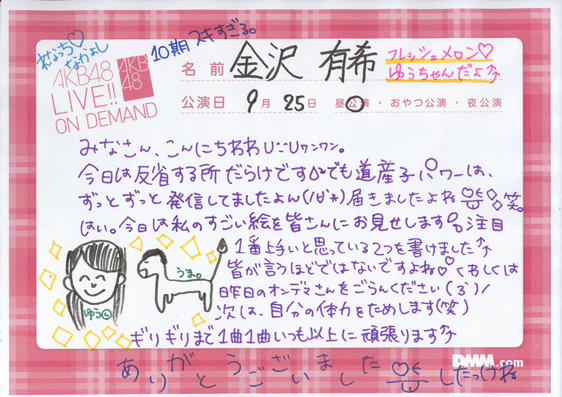 れなっち♡
なかよし
10期スキすぎる。
AKB48
LIVE!!
ON DEMAND
AKB
48
名前 金沢 有希
フレッシュメロン♡
ゆうちゃんだよ
公演日 9月25日 昼公演・おやつ公演・夜公演
みなさん、こんにちわわU^ェ^Uワンワン。
今日は反省する所だらけですがでも道産子パワーは、
ずっとずっと発信してましたよん 届きましたよね 笑。
はい。今日は私のすごい絵を皆さんにお見せします 注目
1番上手いと思っている2つを書きました
皆が言うほどではないですよね くわしくは
昨日のオンデマさんをごらんください(3)/
次は、自分の体力をためします(笑)
ゆう
うま。
ギリギリまで1曲1曲いつも以上に頑張ります
ありがとうございました
したっけね
DMM.com